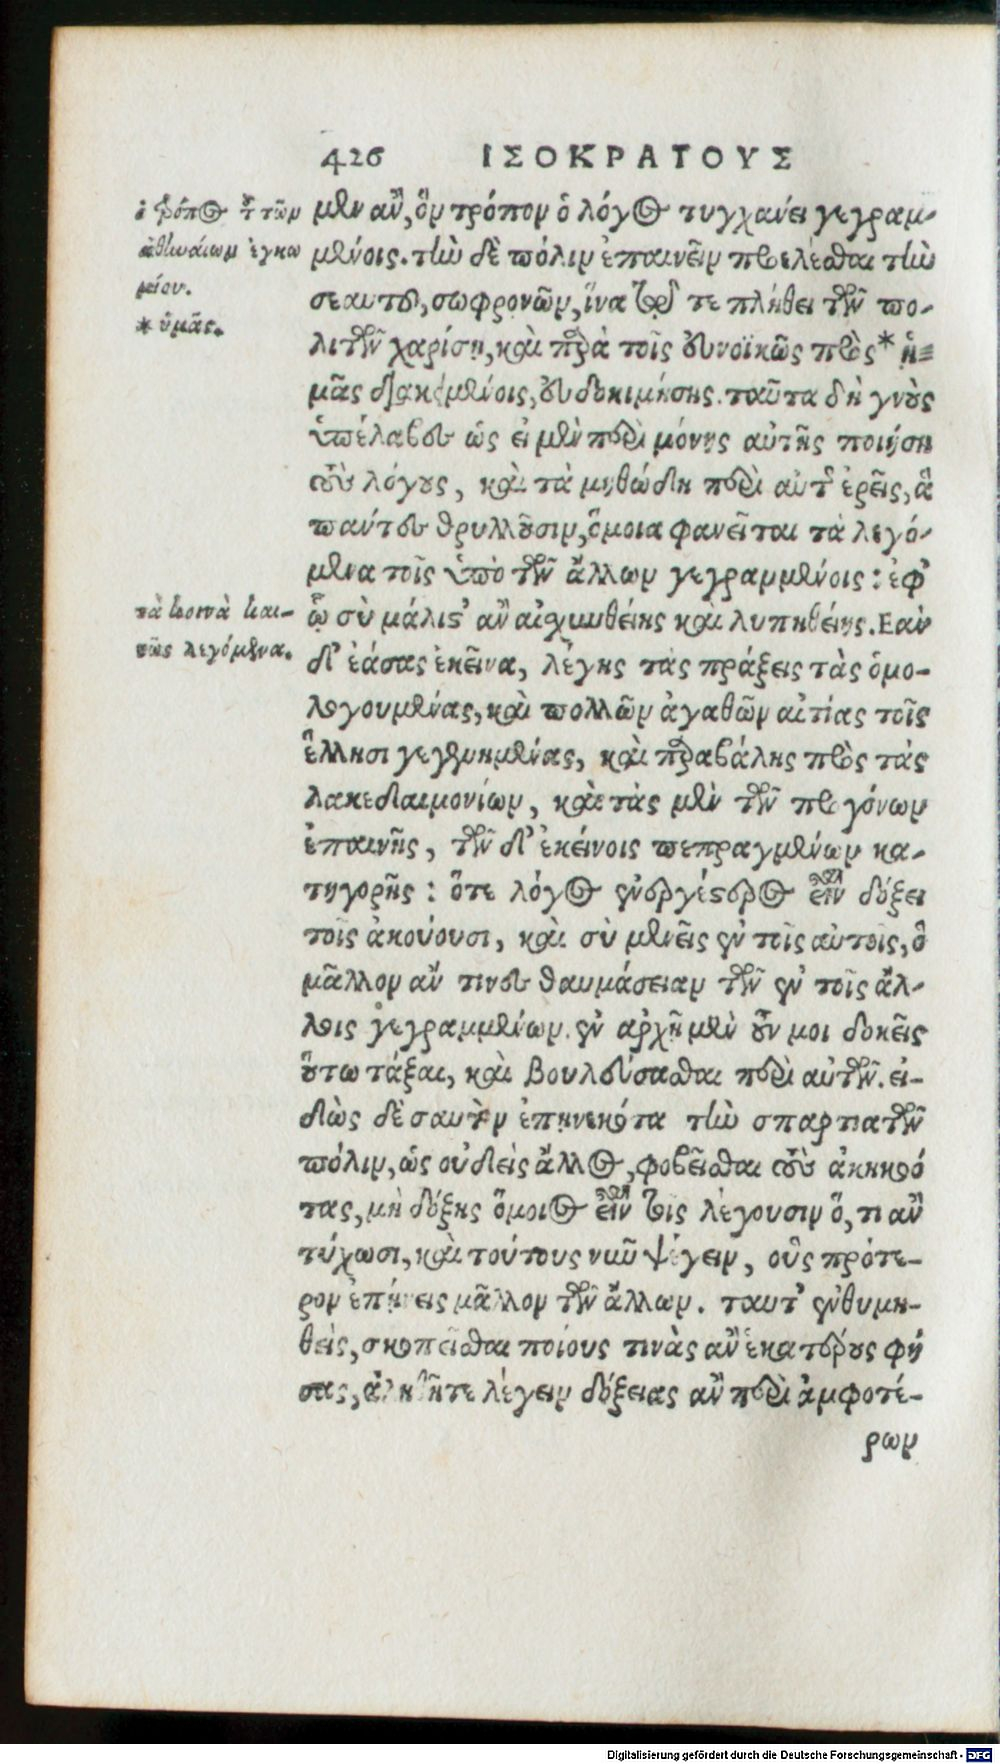 426 ΙΣΟΚΡΑΤΟΥΣ
ὁ τρόπος τ τῶν
ἀθηναίων ἐγκω
μίου.
* ὑμᾶς.
μὲν ἂν, ὃν τρόπον ὁ λόγος τυγχάνει γεγραμ-
μένοις. τὴν δὲ πόλιν ἐπαινεῖν προελέσθαι τὴν
σεαυτοῦ, σωφρονῶν, ἵνα τῷ τε πλήθει τῶν πο-
λιτῶν χαρίσῃ, καὶ παρὰ τοῖς εὐνοϊκῶς πρὸς * ἡ-
μᾶς διακειμένοις, εὐδοκιμήσῃς. ταῦτα δὴ γνοὺς
ὑπέλαβες ὡς εἰ μὲν περὶ μόνης αὐτῆς ποιήσῃ
τοὺς λόγους, καὶ τὰ μυθώδη περὶ αὐτῆς ἐρεῖς, ἃ
πάντες θρυλλοῦσιν, ὅμοια φανεῖται τὰ λεγό-
μενα τοῖς ὑπὸ τῶν ἄλλων γεγραμμένοις: ἐφ'
τὰ κοινὰ και-
νῶς λεγόμενα.
ᾧ σὺ μάλιστ' ἂν αἰσχυνθείης καὶ λυπηθείης. Ἐὰν
δ' ἐάσας ἐκεῖνα, λέγῃς τὰς πράξεις τὰς ὁμο-
λογουμένας, καὶ πολλῶν ἀγαθῶν αἰτίας τοῖς
ἕλλησι γεγενημένας, καὶ παραβάλῃς πρὸς τὰς
λακεδαιμονίων, καὶ τὰς μὲν τῶν προγόνων
ἐπαινῇς, τῶν δ' ἐκείνοις πεπραγμένων κα-
τηγορῇς: ὅτε λόγος ἐνεργέστερος εἶναι δόξει
τοῖς ἀκούουσι, καὶ σὺ μενεῖς ἐν τοῖς αὐτοῖς, ὃ
μᾶλλον ἄν τινες θαυμάσειαν τῶν ἐν τοῖς ἄλ-
λοις γεγραμμένων. ἐν ἀρχῇ μὲν οὖν μοι δοκεῖς
οὕτω τάξαι, καὶ βουλεύσασθαι περὶ αὐτῶν. εἰ-
δὼς δὲ σαυτὸν ἐπῃνεκότα τὴν σπαρτιατῶν
πόλιν, ὡς οὐδεὶς ἄλλος, φοβεῖσθαι τοὺς ἀκηκοό
τας, μὴ δόξῃς ὅμοιος εἶναι τοῖς λέγουσιν ὅ, τι ἂν
τύχωσι, καὶ τούτους νῦν ψέγειν, οὓς πρότε-
ρον ἐπῄνεις μᾶλλον τῶν ἄλλων. ταυτ' ἐνθυμη-
θεὶς, σκοπεῖσθαι ποίους τινὰς ἂν ἑκατέρους φή
σας, ἀληθῆ τε λέγειν δόξειας ἂν περὶ ἀμφοτέ-
ρων
Digitalisierung gefördert durch die Deutsche Forschungsgemeinschaft - DFG